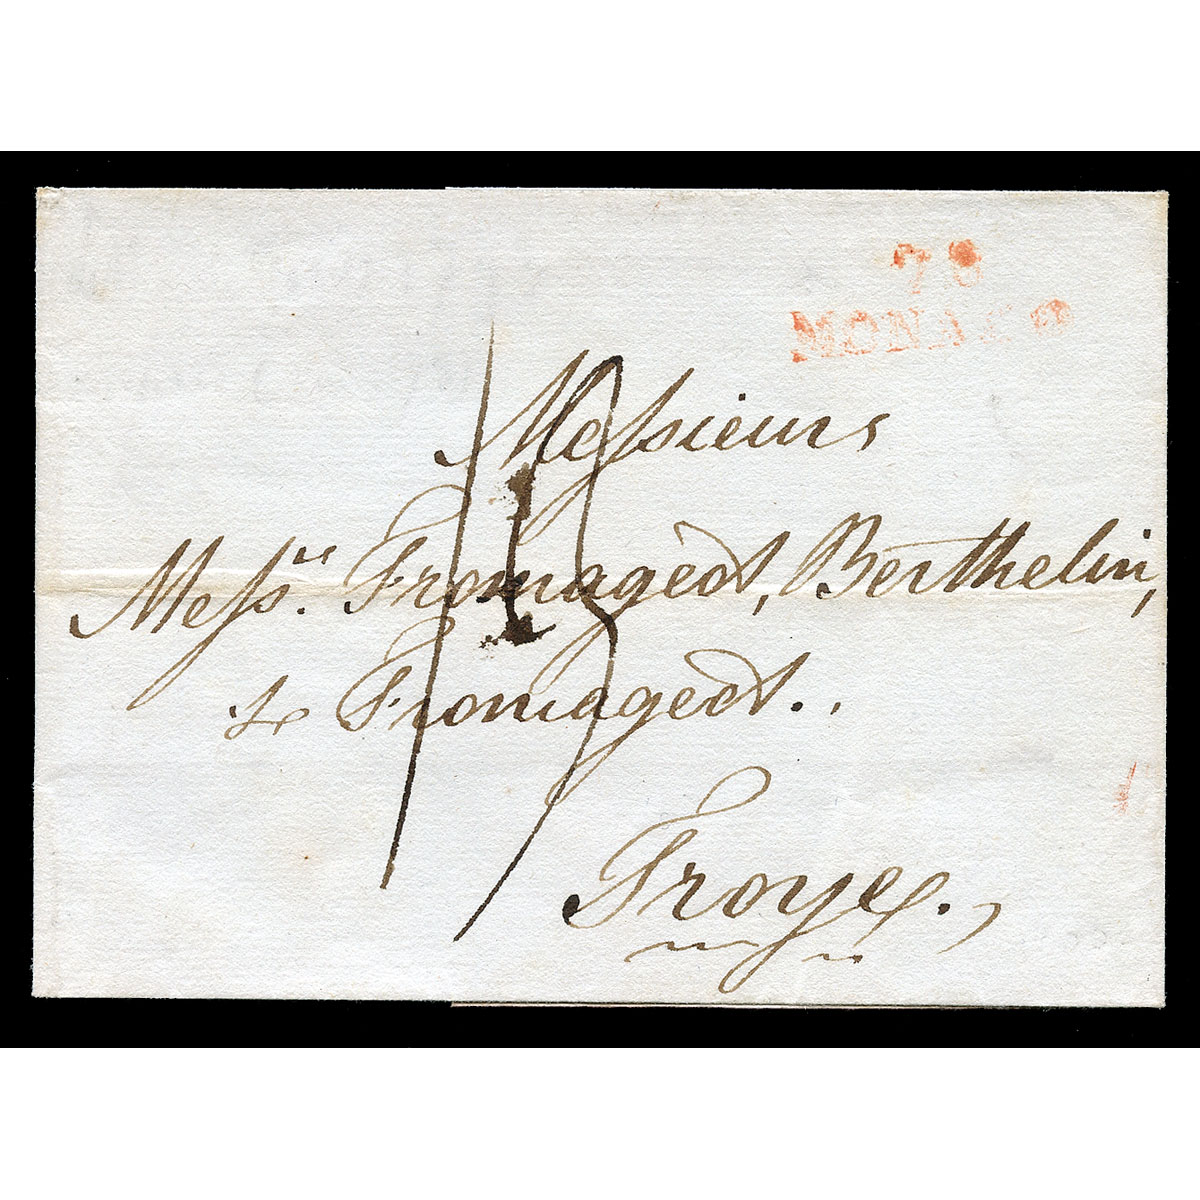 78
MONACO
Messieurs
Mess.rs Fromageot, Berthelin,
& Fromageot.
Troyes.